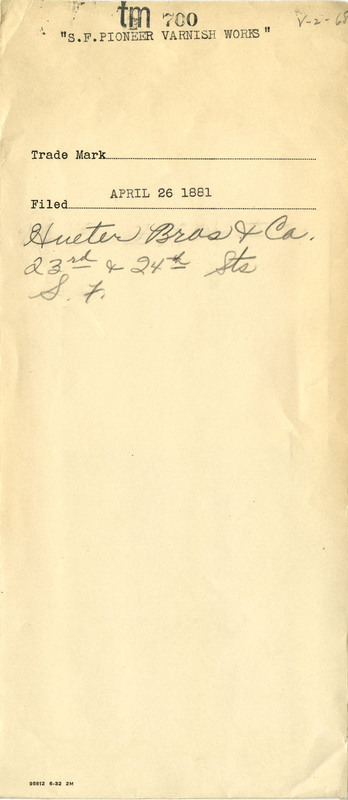 tm 700
V-2-68
"S.F.PIONEER VARNISH WORKS"
Trade Mark
Filed APRIL 26 1881
Hueter Bros & Co.
23rd & 24th Sts
S. F.
95812 6-32 2M